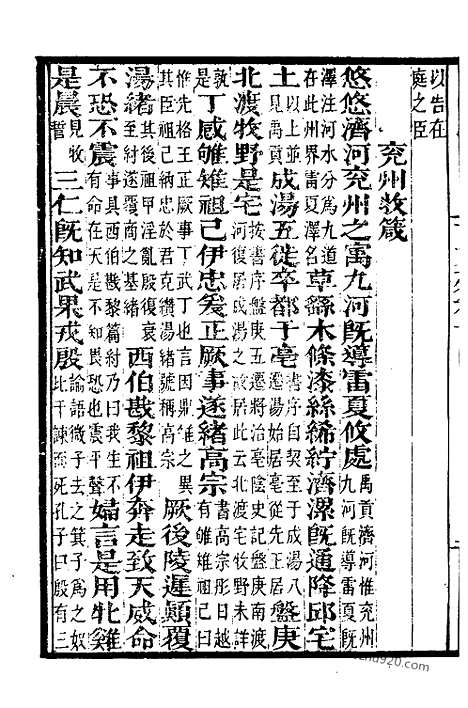 以告在庭之臣
兗州牧箴
悠悠濟河兗州之㝢九河既導雷夏攸處禹貢濟河惟兗州九河既導雷夏既
澤注河水分爲九道在此州界雷夏澤名草繇木條漆絲絺紵濟漯既通降邱宅
土以上並見禹貢成湯五徙卒都于亳書序自契至于成湯八遷湯始居亳從先王居盤庚
北渡牧野是宅按書序盤庚五遷將治亳陰史記盤庚南渡河復居成湯之故居此云北渡宅牧野未詳
孰是丁感雊雉祖己伊忠爰正厥事遂緒高宗書高宗肜日越有雊雉祖己曰
惟先格王正厥事丁武丁也言因鼎雉之異其臣祖己納忠於君克纘湯緒號稱高宗厥後陵遲顛覆
湯緒其後祖甲淫亂殷復衰至紂遂覆商之基緒西伯戡黎祖伊奔走致天威命
不恐不震事具西伯戡黎篇紂乃曰我生不有命在天是不知畏恐也震平聲婦言是用牝雞
是晨見牧誓三仁既知武果戎殷論語微子去之箕子爲之奴比干諫而死孔子曰殷有三